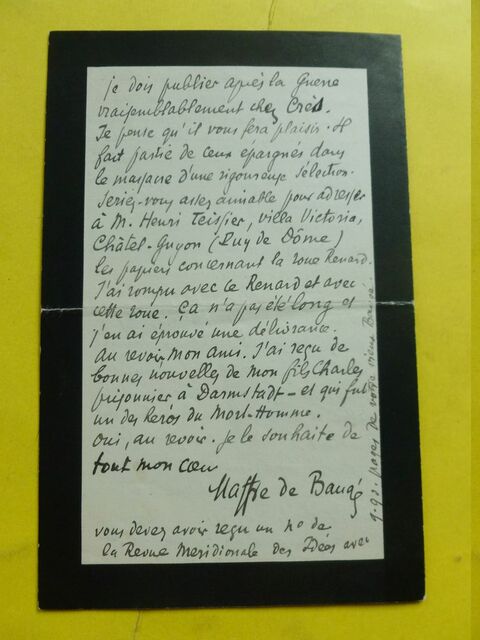 je dois publier après la Guerre
vraisemblablement chez Crès.
Je pense qu'il vous fera plaisir. Il
fait partie de ceux épargnés dans
le massacre d'une rigoureuse sélection.
Seriez-vous assez aimable pour adresser
à M. Henri Teissier, villa Victoria,
Châtel-Guyon (Puy de Dôme)
les papiers concernant la roue Renard.
J'ai rompu avec ce Renard et avec
cette roue. Ça n'a pas été long et
j'en ai éprouvé une délivrance.
Au revoir mon ami. J'ai reçu de
bonnes nouvelles de mon fils Charles
prisonnier à Darmstadt – et qui fut
un des héros du Mort-Homme.
Oui, au revoir. Je le souhaite de
tout mon cœur
Maffre de Baugé
vous devez avoir reçu un nº de
la Revue Meridionale des Idées avec
q.q.s. pages de votre vieux Baugé.